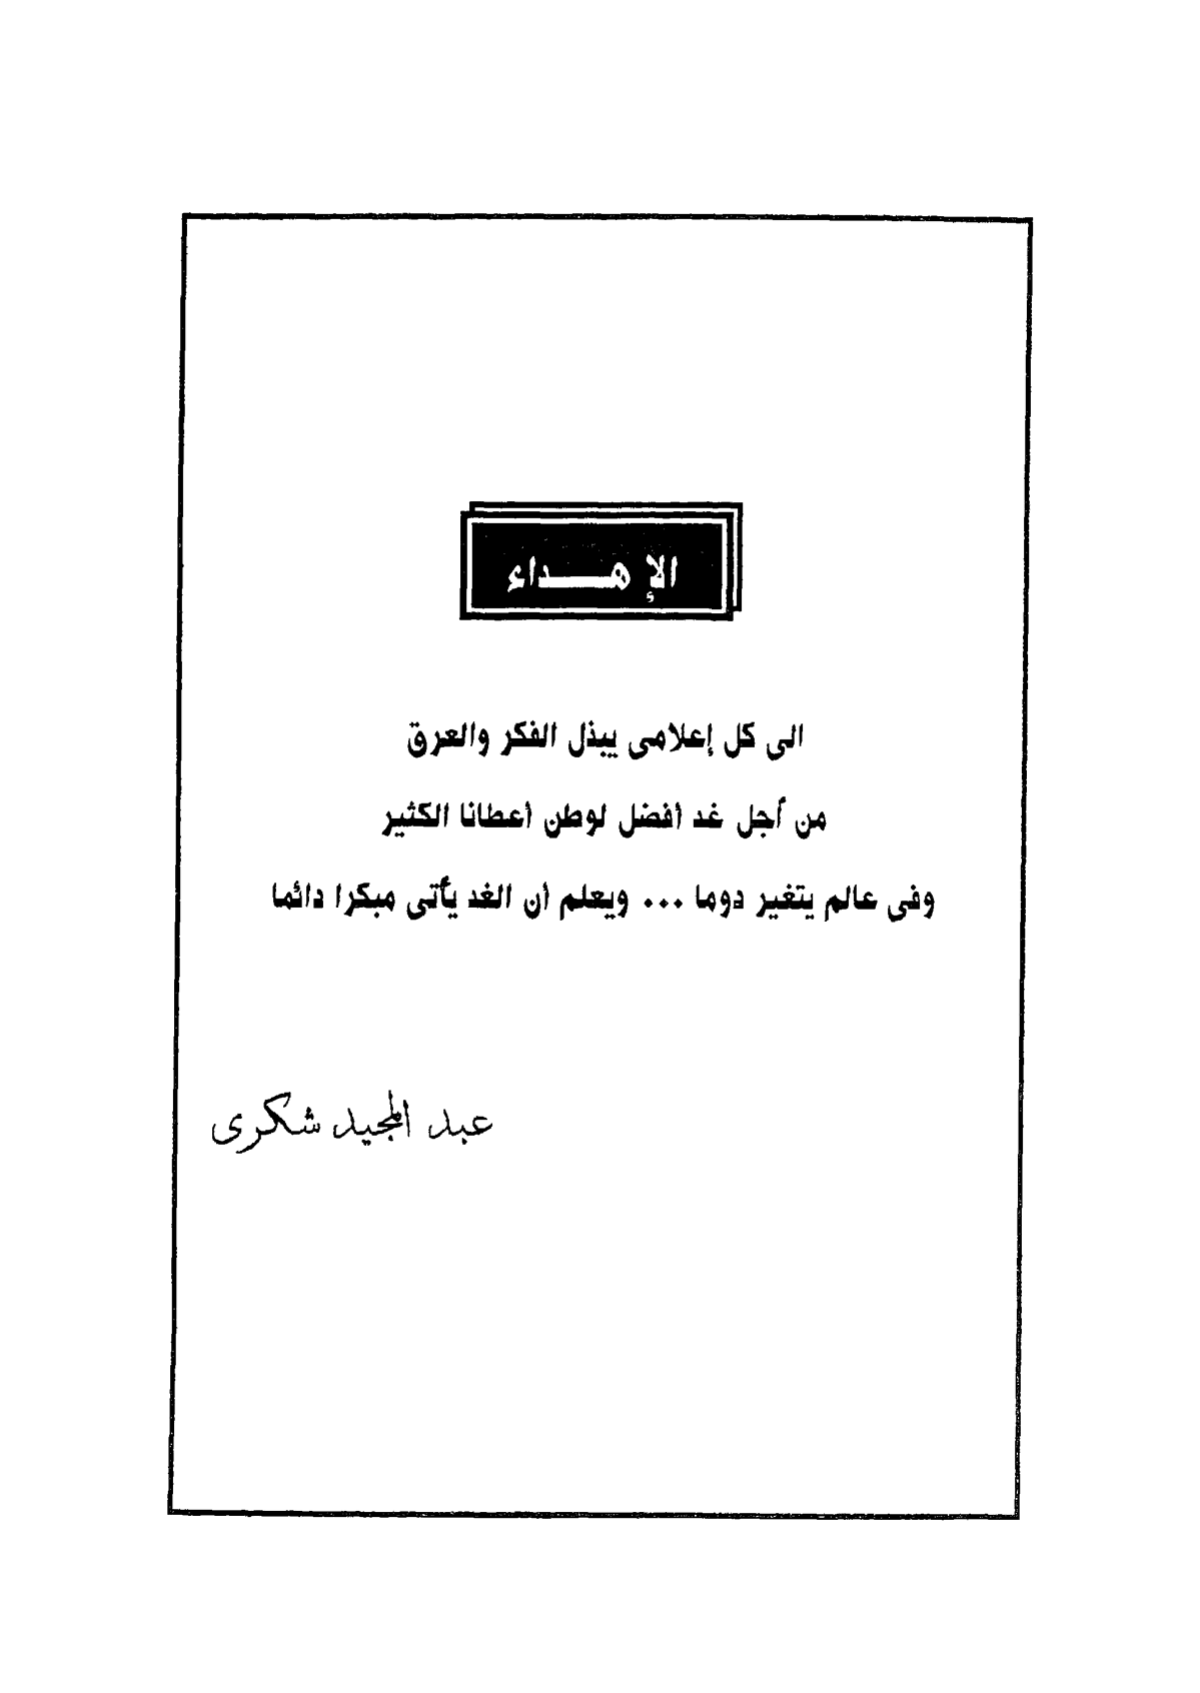 الإهــــداء
الى كل إعلامى يبذل الفكر والعرق
من أجل غد أفضل لوطن أعطانا الكثير
وفى عالم يتغير دوما ... ويعلم أن الغد يأتى مبكرا دائما
عبد المجيد شكرى